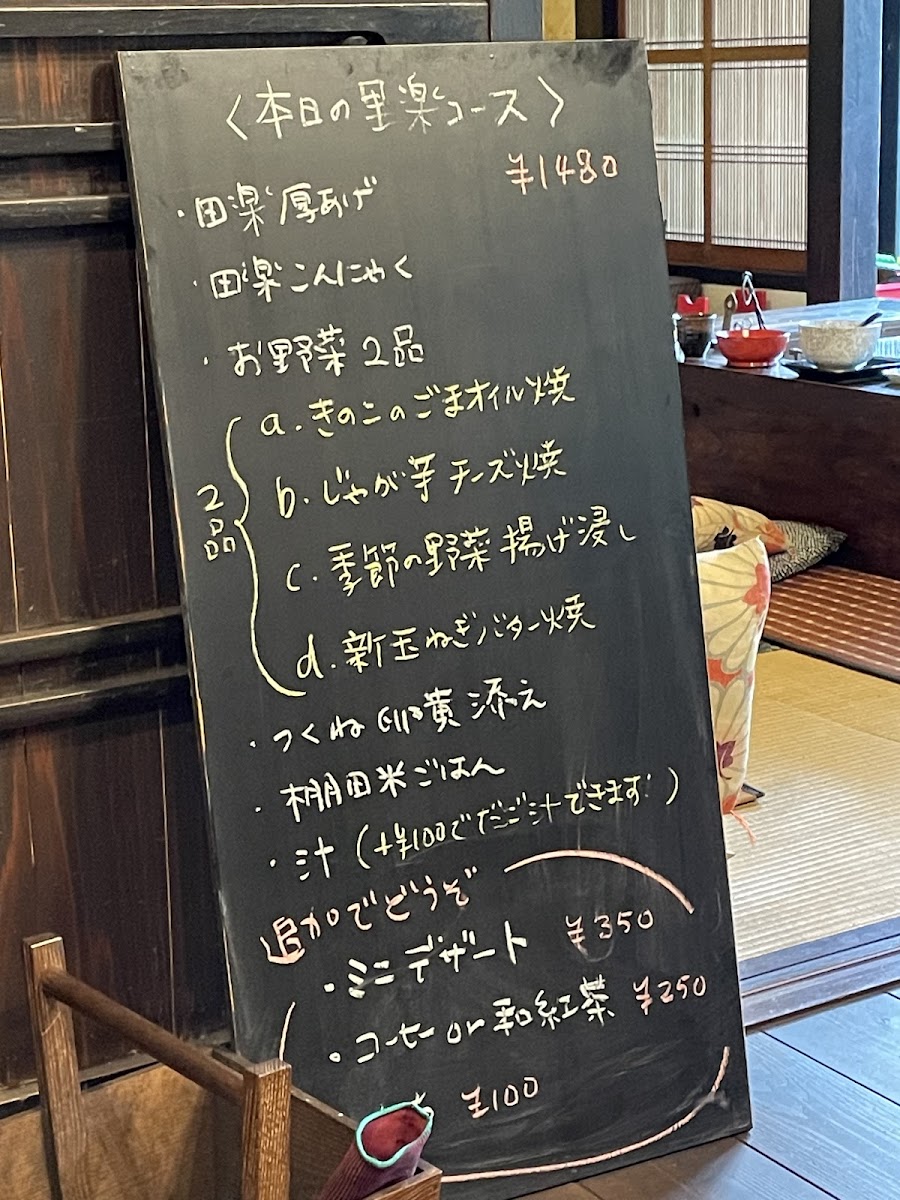 〈本日の里楽コース〉
¥1480
・田楽厚あげ
・田楽こんにゃく
・お野菜2品
2品
a.きのこのごまオイル焼
b.じゃが芋チーズ焼
c.季節の野菜揚げ浸し
d.新玉ねぎバター焼
・つくね卵黄添え
・棚田米ごはん
・汁(+¥100でだご汁できます!)
追加でどうぞ
・ミニデザート ¥350
・コーヒー or 和紅茶 ¥250
¥100